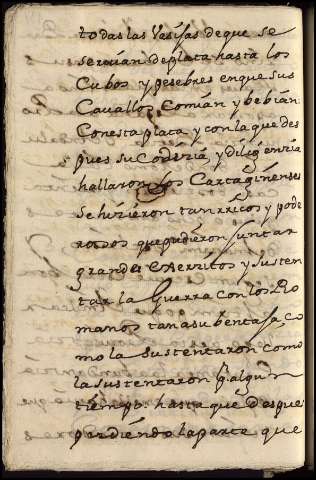 todas las Vasijas de que se
seruian de plata hasta los
Cubos y pesebres en que sus
Cauallos Comian y bebian.
Con esta plata y con la que des
pues su Codizia, y dilig enzia
hallaron los Cartaginenses
se hizieron tan rricos y pode
rosos que pudieron juntar
grandes exerzitos y susten
tar la Guerra con los Ro
manos tan a su bentaja co
mo la sustentaron como
la sustentaron pr. algun
tiempo. hasta que despues
perdiendo la parte que